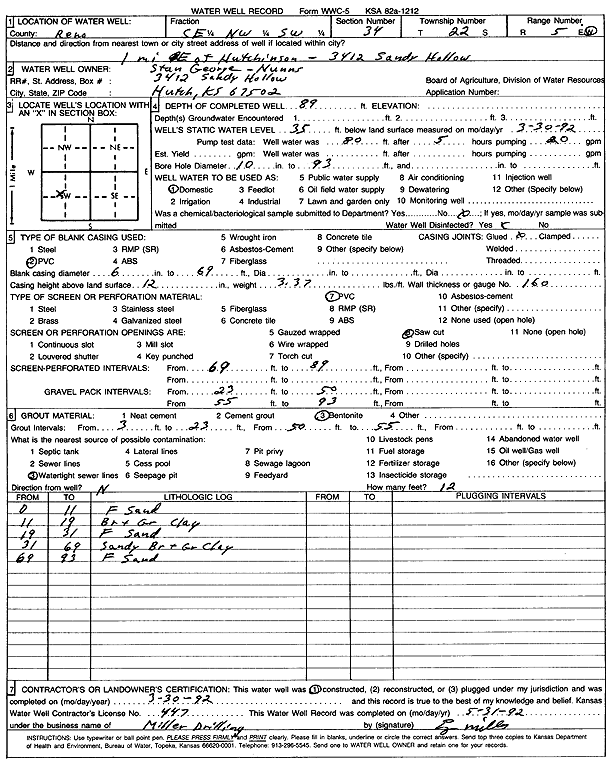 WATER WELL RECORD Form WWC-5 KSA 82a-1212
1 LOCATION OF WATER WELL: Fraction Section Number Township Number Range Number
County: Reno CE ¼ NW ¼ SW ¼ 34 T 22 S R 5 E/W
Distance and direction from nearest town or city street address of well if located within city?
1 mi E of Hutchinson - 3412 Sandy Hollow
2 WATER WELL OWNER: Stan George - Nunns
RR#, St. Address, Box #: 3412 Sandy Hollow Board of Agriculture, Division of Water Resources
City, State, ZIP Code: Hutch, KS 67502 Application Number:
3 LOCATE WELL'S LOCATION WITH AN "X" IN SECTION BOX:
N
NW NE
W E
SW SE
S
1 Mile
X
4 DEPTH OF COMPLETED WELL 89 ft. ELEVATION:
Depth(s) Groundwater Encountered 1. ft. 2. ft. 3. ft.
WELL'S STATIC WATER LEVEL 35 ft. below land surface measured on mo/day/yr 3-30-92
Pump test data: Well water was 80 ft. after 5 hours pumping 20 gpm
Est. Yield gpm: Well water was ft. after hours pumping gpm
Bore Hole Diameter 10 in. to 93 ft., and in. to ft.
WELL WATER TO BE USED AS: 5 Public water supply 8 Air conditioning 11 Injection well
1 Domestic 3 Feedlot 6 Oil field water supply 9 Dewatering 12 Other (Specify below)
2 Irrigation 4 Industrial 7 Lawn and garden only 10 Monitoring well
Was a chemical/bacteriological sample submitted to Department? Yes No X; If yes, mo/day/yr sample was submitted
Water Well Disinfected? Yes X No
5 TYPE OF BLANK CASING USED: 5 Wrought iron 8 Concrete tile CASING JOINTS: Glued X Clamped
1 Steel 3 RMP (SR) 6 Asbestos-Cement 9 Other (specify below) Welded
2 PVC 4 ABS 7 Fiberglass Threaded
Blank casing diameter 6 in. to 69 ft., Dia in. to ft., Dia in. to ft.
Casing height above land surface 12 in., weight 3.37 lbs./ft. Wall thickness or gauge No. 160
TYPE OF SCREEN OR PERFORATION MATERIAL: 7 PVC 10 Asbestos-cement
1 Steel 3 Stainless steel 5 Fiberglass 8 RMP (SR) 11 Other (specify)
2 Brass 4 Galvanized steel 6 Concrete tile 9 ABS 12 None used (open hole)
SCREEN OR PERFORATION OPENINGS ARE: 5 Gauzed wrapped 8 Saw cut 11 None (open hole)
1 Continuous slot 3 Mill slot 6 Wire wrapped 9 Drilled holes
2 Louvered shutter 4 Key punched 7 Torch cut 10 Other (specify)
SCREEN-PERFORATED INTERVALS: From 69 ft. to 89 ft., From ft. to ft.
From ft. to ft., From ft. to ft.
GRAVEL PACK INTERVALS: From 23 ft. to 50 ft., From ft. to ft.
From 55 ft. to 93 ft., From ft. to ft.
6 GROUT MATERIAL: 1 Neat cement 2 Cement grout 3 Bentonite 4 Other
Grout Intervals: From 3 ft. to 23 ft., From 50 ft. to 55 ft., From ft. to ft.
What is the nearest source of possible contamination: 10 Livestock pens 14 Abandoned water well
1 Septic tank 4 Lateral lines 7 Pit privy 11 Fuel storage 15 Oil well/Gas well
2 Sewer lines 5 Cess pool 8 Sewage lagoon 12 Fertilizer storage 16 Other (specify below)
3 Watertight sewer lines 6 Seepage pit 9 Feedyard 13 Insecticide storage
Direction from well? N How many feet? 12
FROM TO LITHOLOGIC LOG FROM TO PLUGGING INTERVALS
0 11 F Sand
11 19 Br + Gr Clay
19 31 F Sand
31 69 Sandy Br + Gr Clay
69 93 F Sand
7 CONTRACTOR'S OR LANDOWNER'S CERTIFICATION: This water well was (1) constructed, (2) reconstructed, or (3) plugged under my jurisdiction and was
completed on (mo/day/year) 3-30-92 and this record is true to the best of my knowledge and belief. Kansas
Water Well Contractor's License No. 447 This Water Well Record was completed on (mo/day/yr) 5-31-92
under the business name of Miller Drilling by (signature)
INSTRUCTIONS: Use typewriter or ball point pen. PLEASE PRESS FIRMLY and PRINT clearly. Please fill in blanks, underline or circle the correct answers. Send top three copies to Kansas Department
of Health and Environment, Bureau of Water, Topeka, Kansas 66620-0001. Telephone: 913-296-5545. Send one to WATER WELL OWNER and retain one for your records.